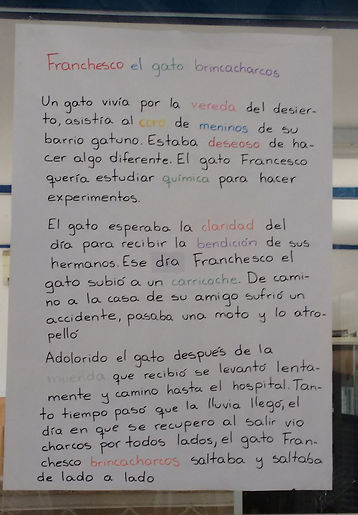 Franchesco el gato brincacharcos
Un gato vivía por la vereda del desier-
to, asistía al coro de meninos de su
barrio gatuno. Estaba deseoso de ha-
cer algo diferente. El gato Francesco
quería estudiar química para hacer
experimentos.
El gato esperaba la claridad del
día para recibir la bendición de sus
hermanos. Ese día Franchesco el
gato subió a un carricoche. De cami-
no a la casa de su amigo sufrió un
accidente, pasaba una moto y lo atro-
pelló
Adolorido el gato después de la
muenda que recibió se levantó lenta-
mente y camino hasta el hospital. Tan-
to tiempo pasó que la lluvia llegó, el
día en que se recupero al salir vio
charcos por todos lados, el gato Fran-
chesco brincacharcos saltaba y saltaba
de lado a lado